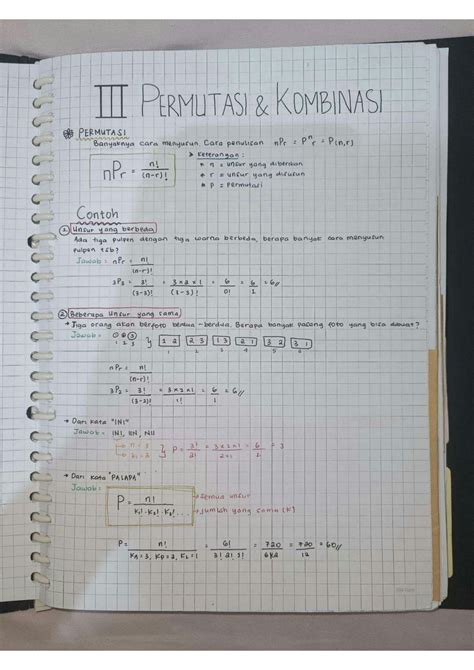 III PERMUTASI & KOMBINASI
PERMUTASI
Banyaknya cara menyusun. Cara penulisan nPr = Pⁿr = P(n,r)
nPr = n! / (n-r)!
Keterangan :
n = unsur yang diberikan
r = unsur yang disusun
P = Permutasi
Contoh
1. Unsur yang berbeda
Ada tiga pulpen dengan tiga warna berbeda, berapa banyak cara menyusun
pulpen tsb?
Jawab = nPr = n! / (n-r)!
3P3 = 3! / (3-3)! = 3x2x1 / (3-3)! = 6 / 0! = 6 / 1 = 6//
2. Beberapa unsur yang sama
→ Tiga orang akan berfoto berdua-berdua. Berapa banyak pasang foto yang bisa dibuat?
Jawab =
1 2 3
1 2 2 3 1 3 2 1 3 2 3 1
1 2 3 4 5 6
nPr = n! / (n-r)!
3P2 = 3! / (3-2)! = 3x2x1 / 1! = 6 / 1 = 6//
→ Dari kata "INI"
Jawab = INI, IIN, NII
n = 3
P = 3! / 2! = 3x2x1 / 2x1 = 6 / 2 = 3
→ Dari kata "PALAPA"
Jawab =
P = n! / K₁! . K₂! . K₃! ...
→ semua unsur
→ jumlah yang sama (K)
P = n! / KA = 3, KP = 2, KL = 1 = 6! / 3! 2! 1! = 720 / 6x2 = 720 / 12 = 60//